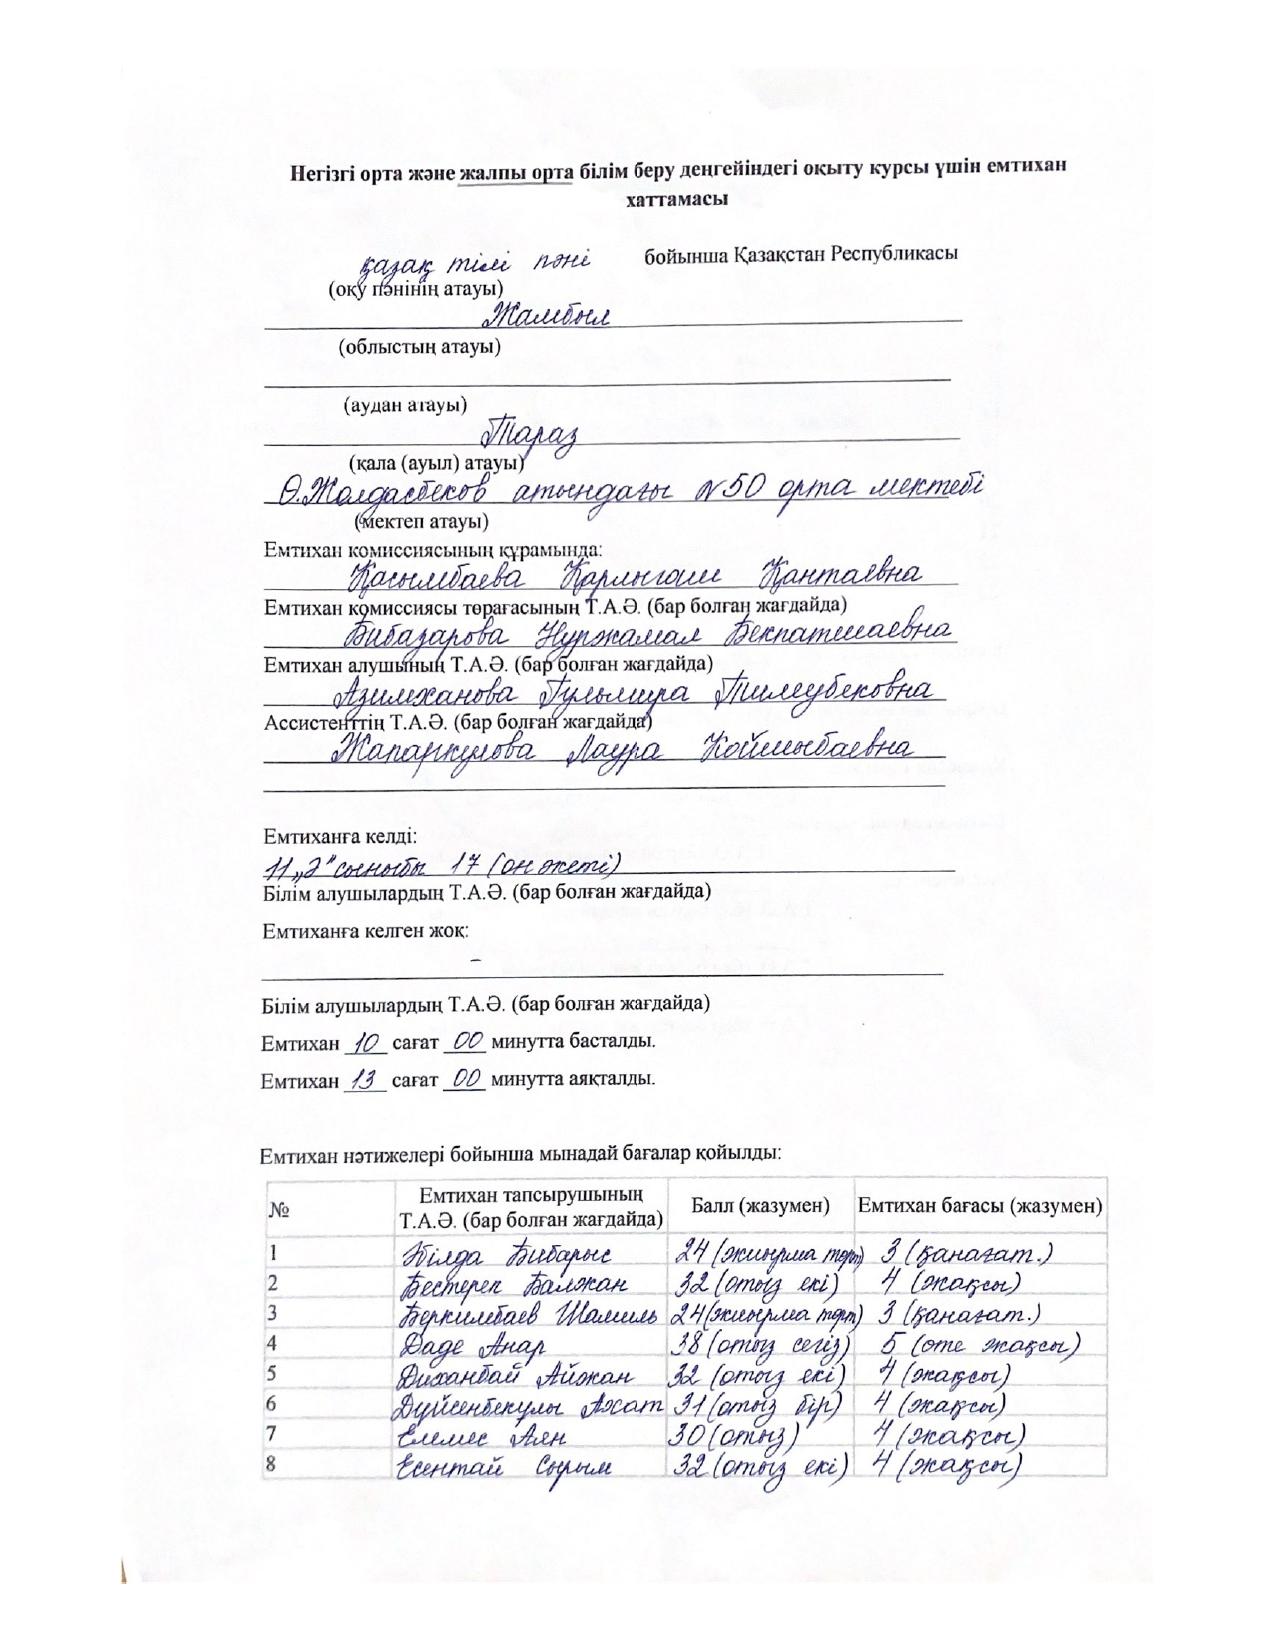 Негізгі орта және жалпы орта білім беру деңгейіндегі оқыту курсы үшін емтихан
хаттамасы
қазақ тілі пәні бойынша Қазақстан Республикасы
(оқу пәнінің атауы)
Жамбыл
(облыстың атауы)
(аудан атауы)
Тараз
(қала (ауыл) атауы)
Ө.Жолдасбеков атындағы №50 орта мектебі
(мектеп атауы)
Емтихан комиссиясының құрамында:
Қасымбаева Қарлығаш Қантаевна
Емтихан комиссиясы төрағасының Т.А.Ә. (бар болған жағдайда)
Бибазарова Нуржамал Бекпатшаевна
Емтихан алушының Т.А.Ә. (бар болған жағдайда)
Азимханова Гульмира Тилеубековна
Ассистенттің Т.А.Ә. (бар болған жағдайда)
Жапаркулова Лаура Койшыбаевна
Емтиханға келді:
11 „Ә" сыныбы 17 (он жеті)
Білім алушылардың Т.А.Ә. (бар болған жағдайда)
Емтиханға келген жоқ:
–
Білім алушылардың Т.А.Ә. (бар болған жағдайда)
Емтихан 10 сағат 00 минутта басталды.
Емтихан 13 сағат 00 минутта аяқталды.
Емтихан нәтижелері бойынша мынадай бағалар қойылды:
№ Емтихан тапсырушының Т.А.Ә. (бар болған жағдайда) Балл (жазумен) Емтихан бағасы (жазумен)
1 Бибарыс 24 (жиырма төрт) 3 (қанағат.)
2 Бестерек Балжан 32 (отыз екі) 4 (жақсы)
3 Беркимбаев Шамиль 24 (жиырма төрт) 3 (қанағат.)
4 Даде Анар 38 (отыз сегіз) 5 (өте жақсы)
5 Диханбай Айжан 32 (отыз екі) 4 (жақсы)
6 Дүйсенбекұлы Ахат 31 (отыз бір) 4 (жақсы)
7 Елемес Аян 30 (отыз) 4 (жақсы)
8 Есентай Сырым 32 (отыз екі) 4 (жақсы)